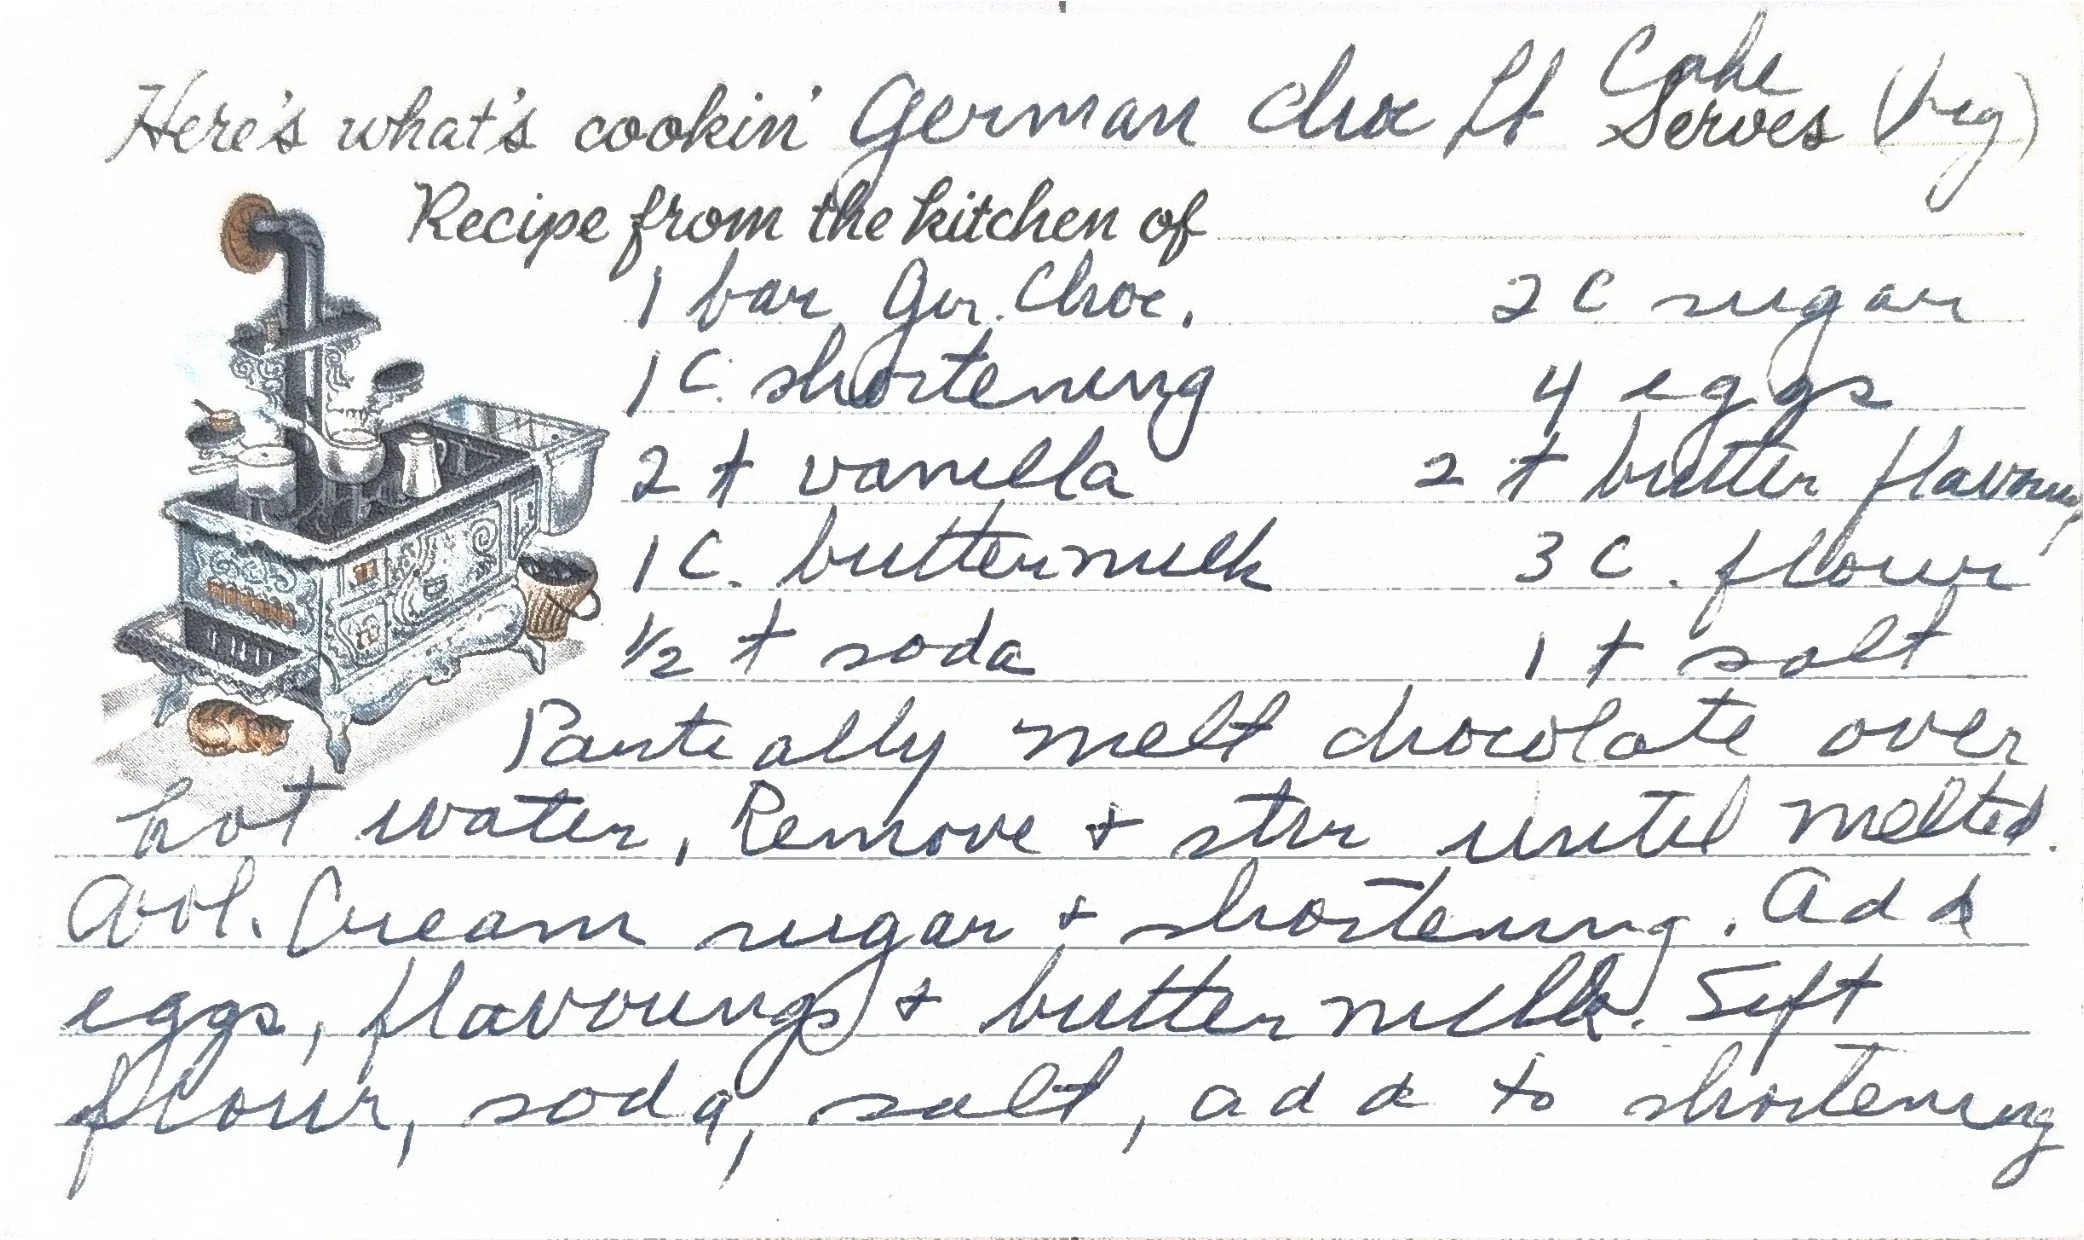 Here's what's cookin' German Choc Lt Cake Serves
Recipe from the kitchen of
1 bar Ger. Choc. 2 C sugar
1 C. shortening 4 eggs
2 t vanilla 2 t butter flavoring
1 C. buttermilk 3 C. flour
1/2 t soda 1 t salt
Partially melt chocolate over
hot water, Remove + stir until melted.
Cool. Cream sugar + shortening. Add
eggs, flavourings + buttermilk. Sift
flour, soda, salt, add to shortening